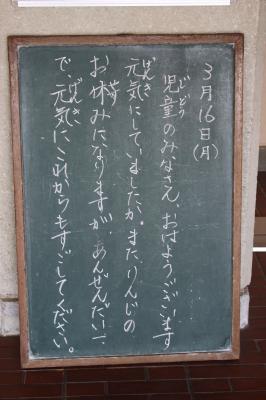 3月16日(月)
児童のみなさん、おはようございます
じどう
元気にしていましたか。また、りんじの
げんき
お休みになりますが、あんぜんだい一
やす
で、元気にこれからもすごしてください。
げんき